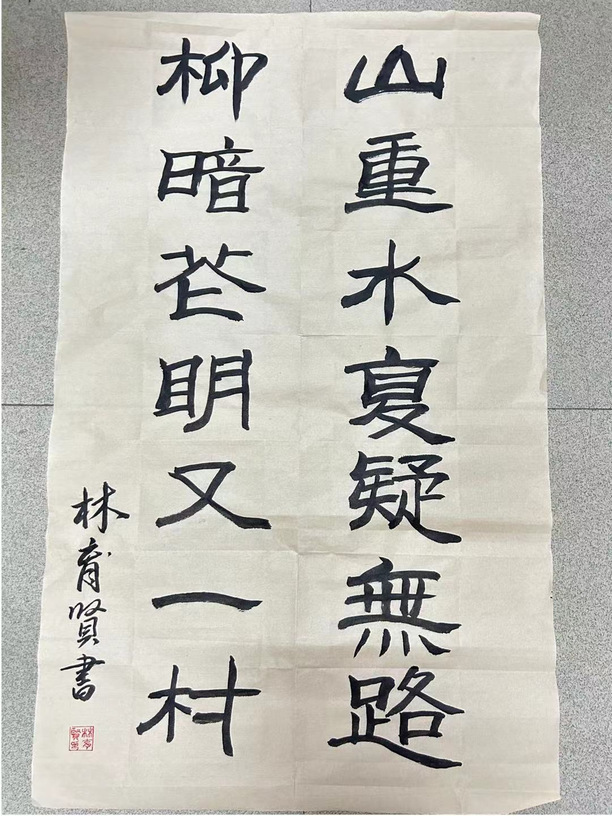 山重水复疑無路
柳暗花明又一村
林育賢書